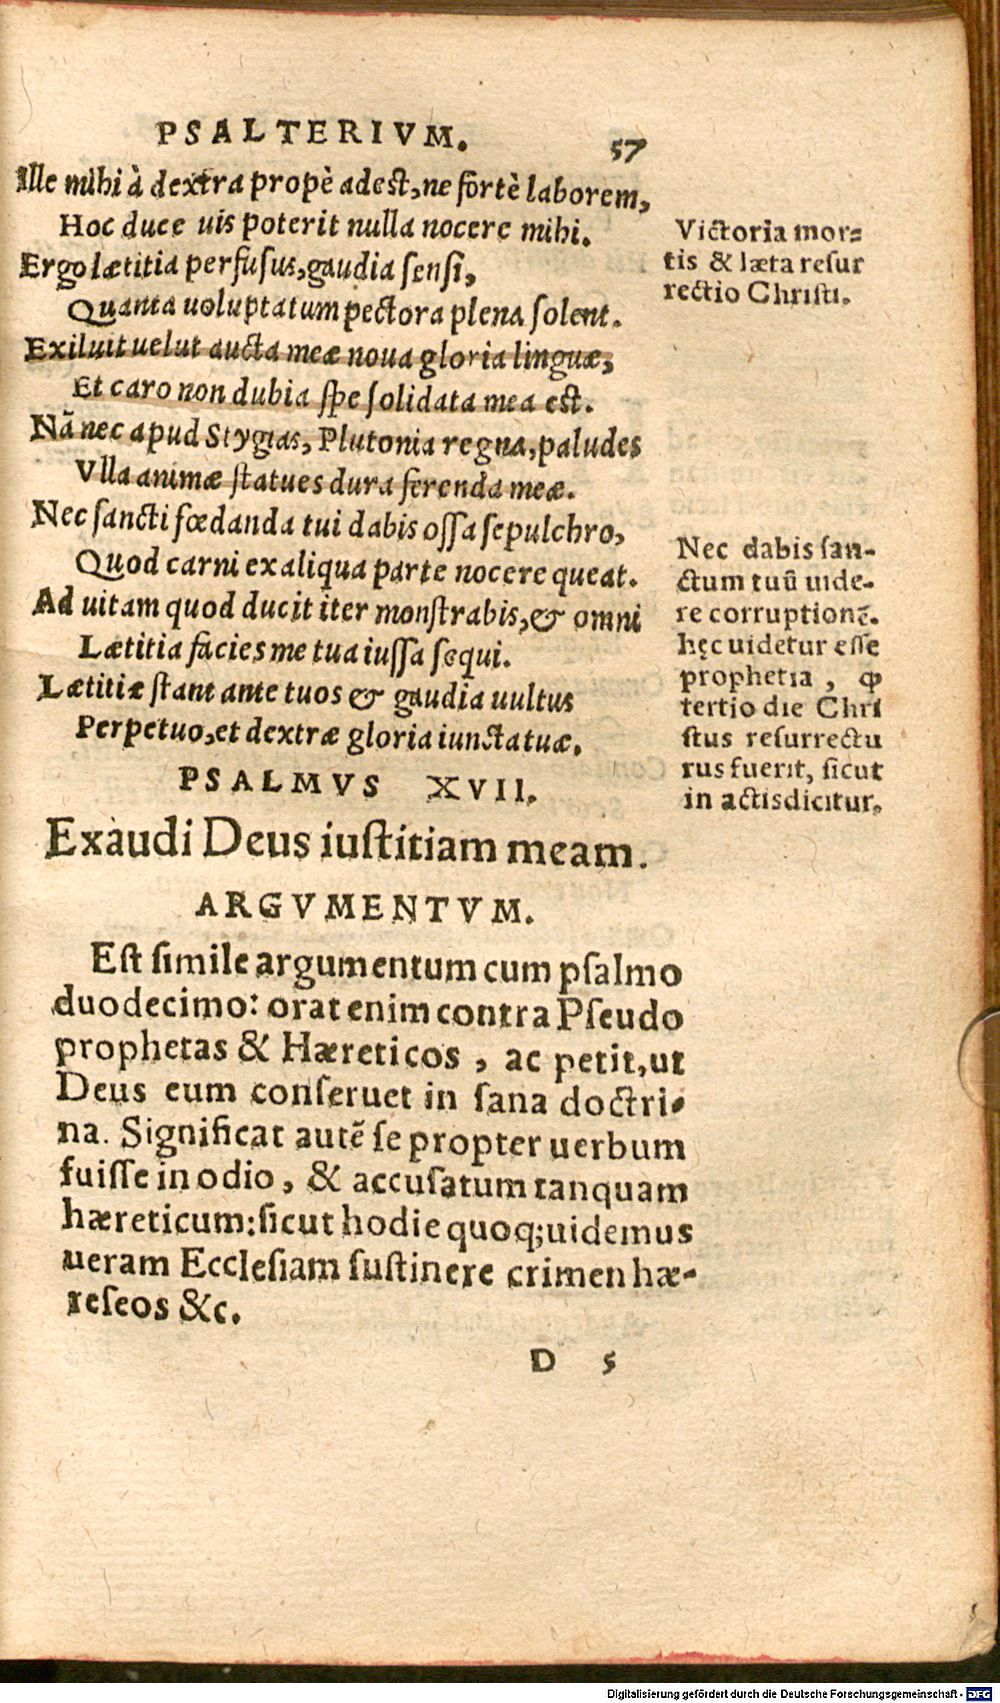 PSALTERIVM. 57
Ille mihi à dextra propè adest, ne fortè laborem,
Hoc duce uis poterit nulla nocere mihi.
Ergo lætitia perfusus, gaudia sensi,
Quanta uoluptatum pectora plena solent.
Exiluit uelut aucta meæ noua gloria linguæ,
Et caro non dubia spe solidata mea est.
Nã nec apud Stygias, Plutonia regna, paludes
Vlla animæ statues dura ferenda meæ.
Nec sancti fœdanda tui dabis ossa sepulchro,
Quod carni ex aliqua parte nocere queat.
Ad uitam quod ducit iter monstrabis, & omni
Lætitia facies me tua iussa sequi.
Lætitiæ stant ante tuos & gaudia uultus
Perpetuo, et dextræ gloria iuncta tuæ.
Victoria mor=
tis & læta resur
rectio Christi.
Nec dabis san-
ctum tuũ uide-
re corruptionẽ.
hęc uidetur esse
prophetia, ꝙ
tertio die Chri
stus resurrectu
rus fuerit, sicut
in actis dicitur.
PSALMVS XVII.
Exaudi Deus iustitiam meam.
ARGVMENTVM.
Est simile argumentum cum psalmo
duodecimo: orat enim contra Pseudo
prophetas & Hæreticos, ac petit, ut
Deus eum conseruet in sana doctri-
na. Significat autẽ se propter uerbum
fuisse in odio, & accusatum tanquam
hæreticum: sicut hodie quoq; uidemus
ueram Ecclesiam sustinere crimen hæ-
reseos &c.
D 5
Digitalisierung gefördert durch die Deutsche Forschungsgemeinschaft - DFG